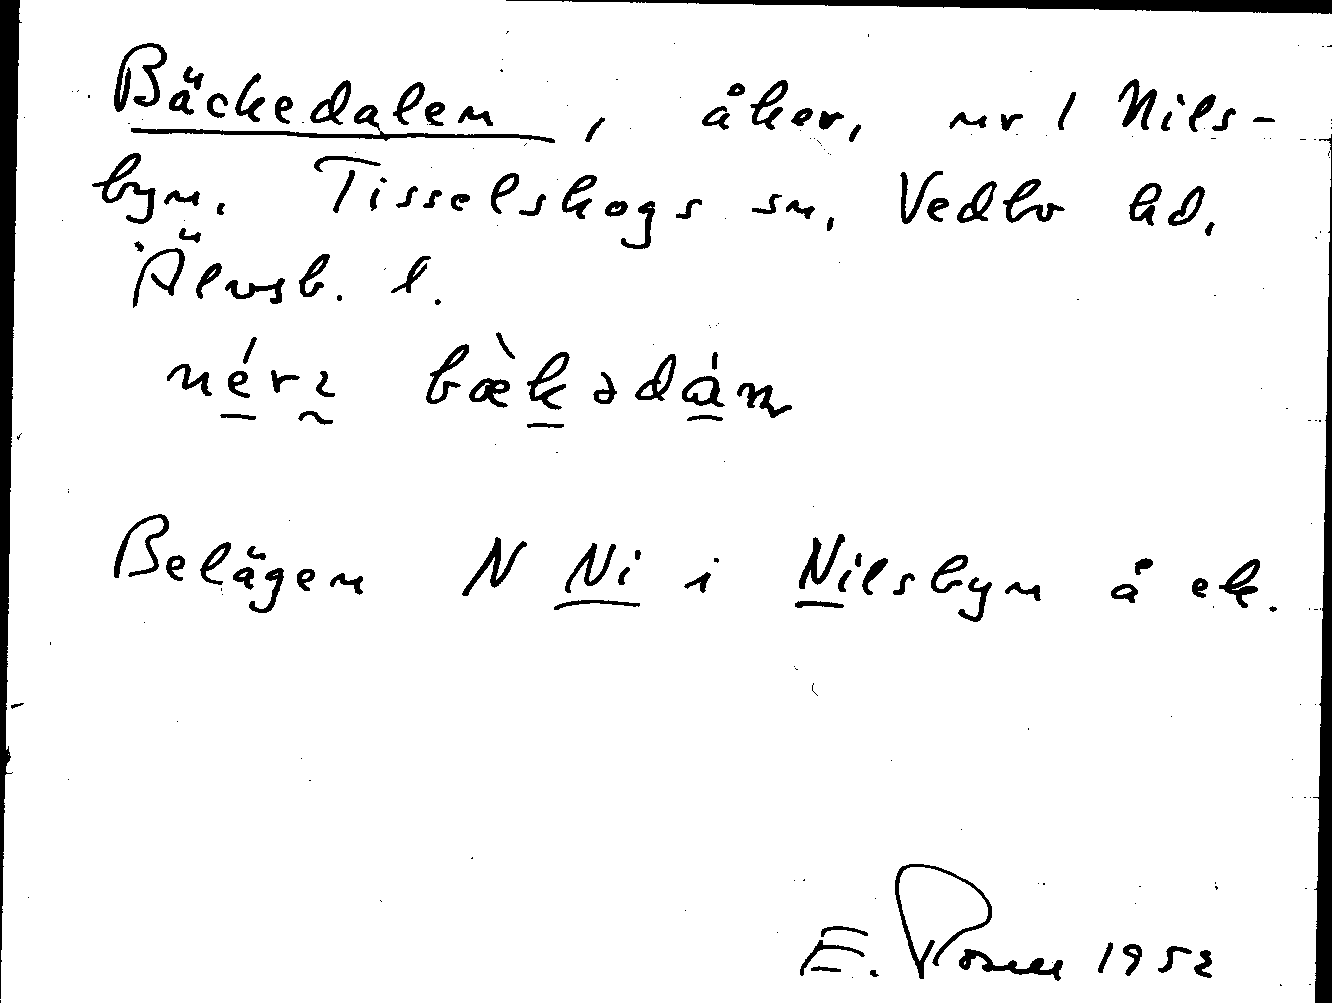 Bäckedalen, åker, nr 1 Nils-
byn. Tisselskogs sn, Vedbo hd,
Älvsb. l.
Belägen N Ni i Nilsbyn å ek.
E. Rosell 1952